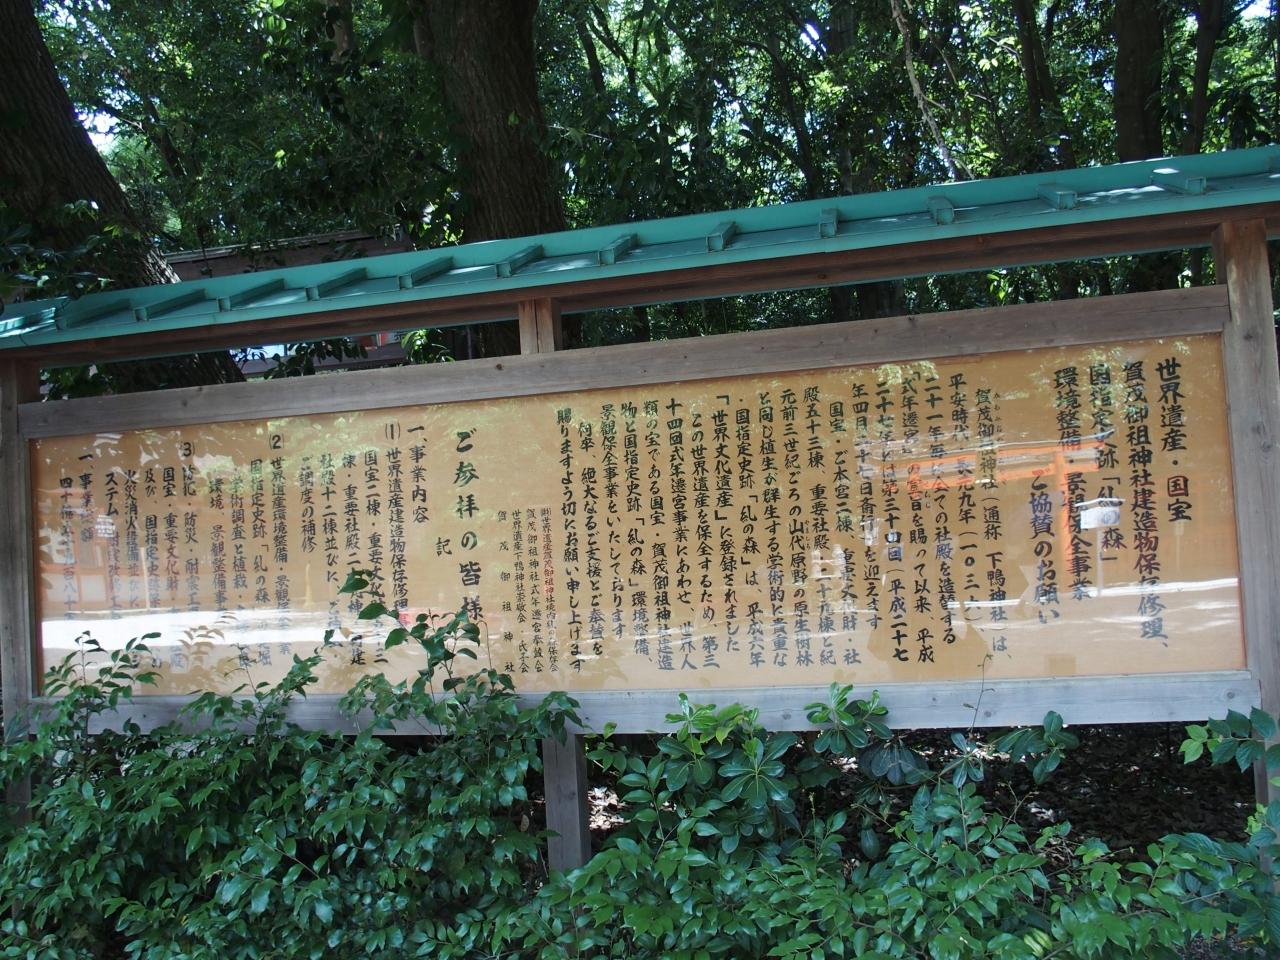 世界遺産・国宝
賀茂御祖神社建造物保存修理、
国指定史跡「糺の森」
環境整備・景観保全事業
ご協賛のお願い
賀茂御祖神社（通称 下鴨神社）は、
平安時代、長元九年（一〇三六）、
二十一年毎に全ての社殿を造替する
「式年遷宮」の宣旨を賜って以来、平成
二十七年には第三十四回（平成二十七
年四月二十七日斎行）を迎えます
国宝・ご本宮二棟、重要文化財・社
殿五十三棟、重要社殿二十九棟と紀
元前三世紀ごろの山代原野の原生樹林
と同じ植生が群生する学術的に貴重な
国指定史跡「糺の森」は、平成六年
「世界文化遺産」に登録されました
この世界遺産を保全するため、第三
十四回式年遷宮事業にあわせ、世界人
類の宝である国宝・賀茂御祖神社建造
物と国指定史跡「糺の森」環境整備、
景観保全事業をいたしております
何卒、絶大なるご支援とご奉賛を
賜りますよう切にお願い申し上げます
賀茂御祖神社式年遷宮奉賛会
世界遺産下鴨神社崇敬会・氏子会
賀茂御祖神社
ご参拝の皆様
記
一、事業内容
⑴世界遺産建造物保存修理
国宝二棟・重要文化財
棟・重要社殿二十
社殿十二棟並びに、
ご調度の補修
⑵世界遺産環境整備、景観保全事業
国指定史跡「糺の森」
学術調査と植栽、
環境、景観整備事
⑶防犯、防災・耐震工
国宝・重要文化財
及び、国指定史跡
火災消火設備並びに
ステム
一、事業